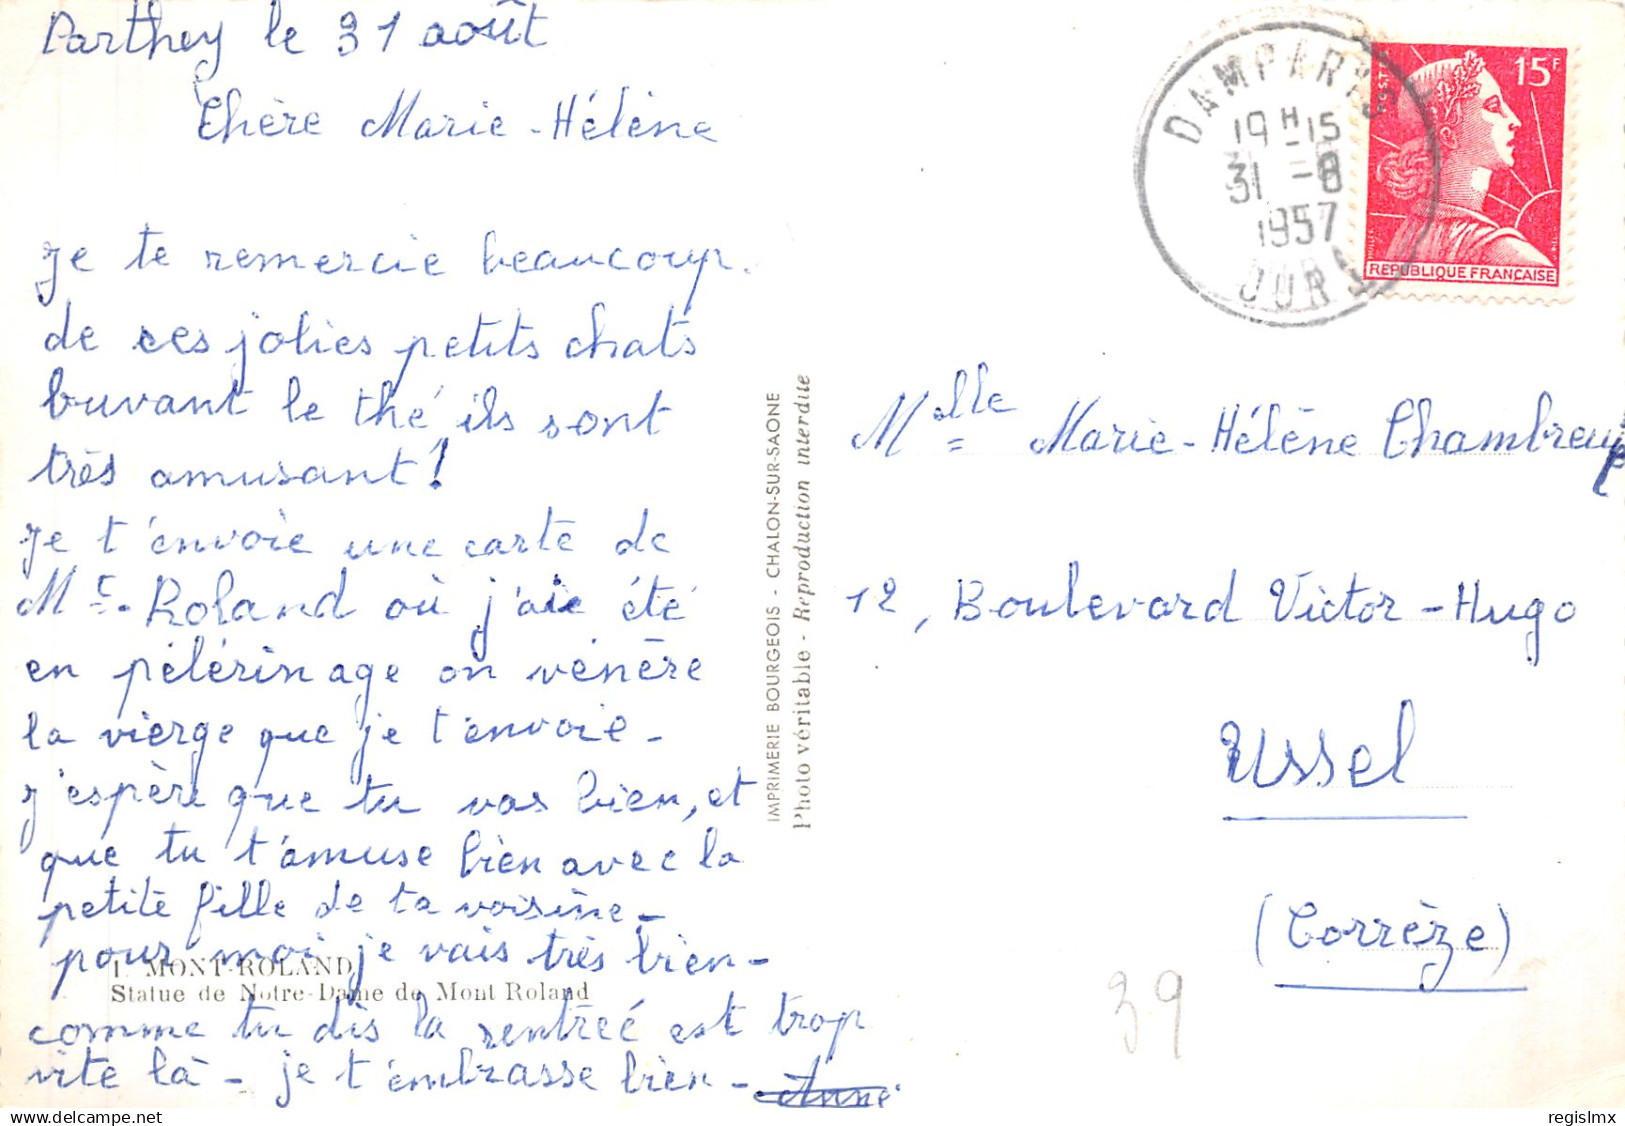 Parthey le 31 août
Chère Marie-Hélène
Je te remercie beaucoup.
de ces jolies petits chats
buvant le thé ils sont
très amusant!
Je t'envoie une carte de
Mt. Roland où j'aie été
en pélérinage on vénère
la vierge que je t'envoie-
J'espère que tu vas bien, et
que tu t'amuse bien avec la
petite fille de ta voisine-
pour moi je vais très bien-
1. MONT-ROLAND
Statue de Notre-Dame de Mont Roland
comme tu dis la rentreé est trop
vite là - je t'embrasse bien-
Anne
IMPRIMERIE BOURGEOIS - CHALON-SUR-SAONE
Photo véritable - Reproduction interdite
DAMPARIS
19H-15
31-8
1957
JURA
POSTES
15F
MULLER
REPUBLIQUE FRANÇAISE
Melle Marie-Hélène
12, Boulevard Victor-Hugo
Ussel
(Corrèze)
39
delcampe.net
regislmx